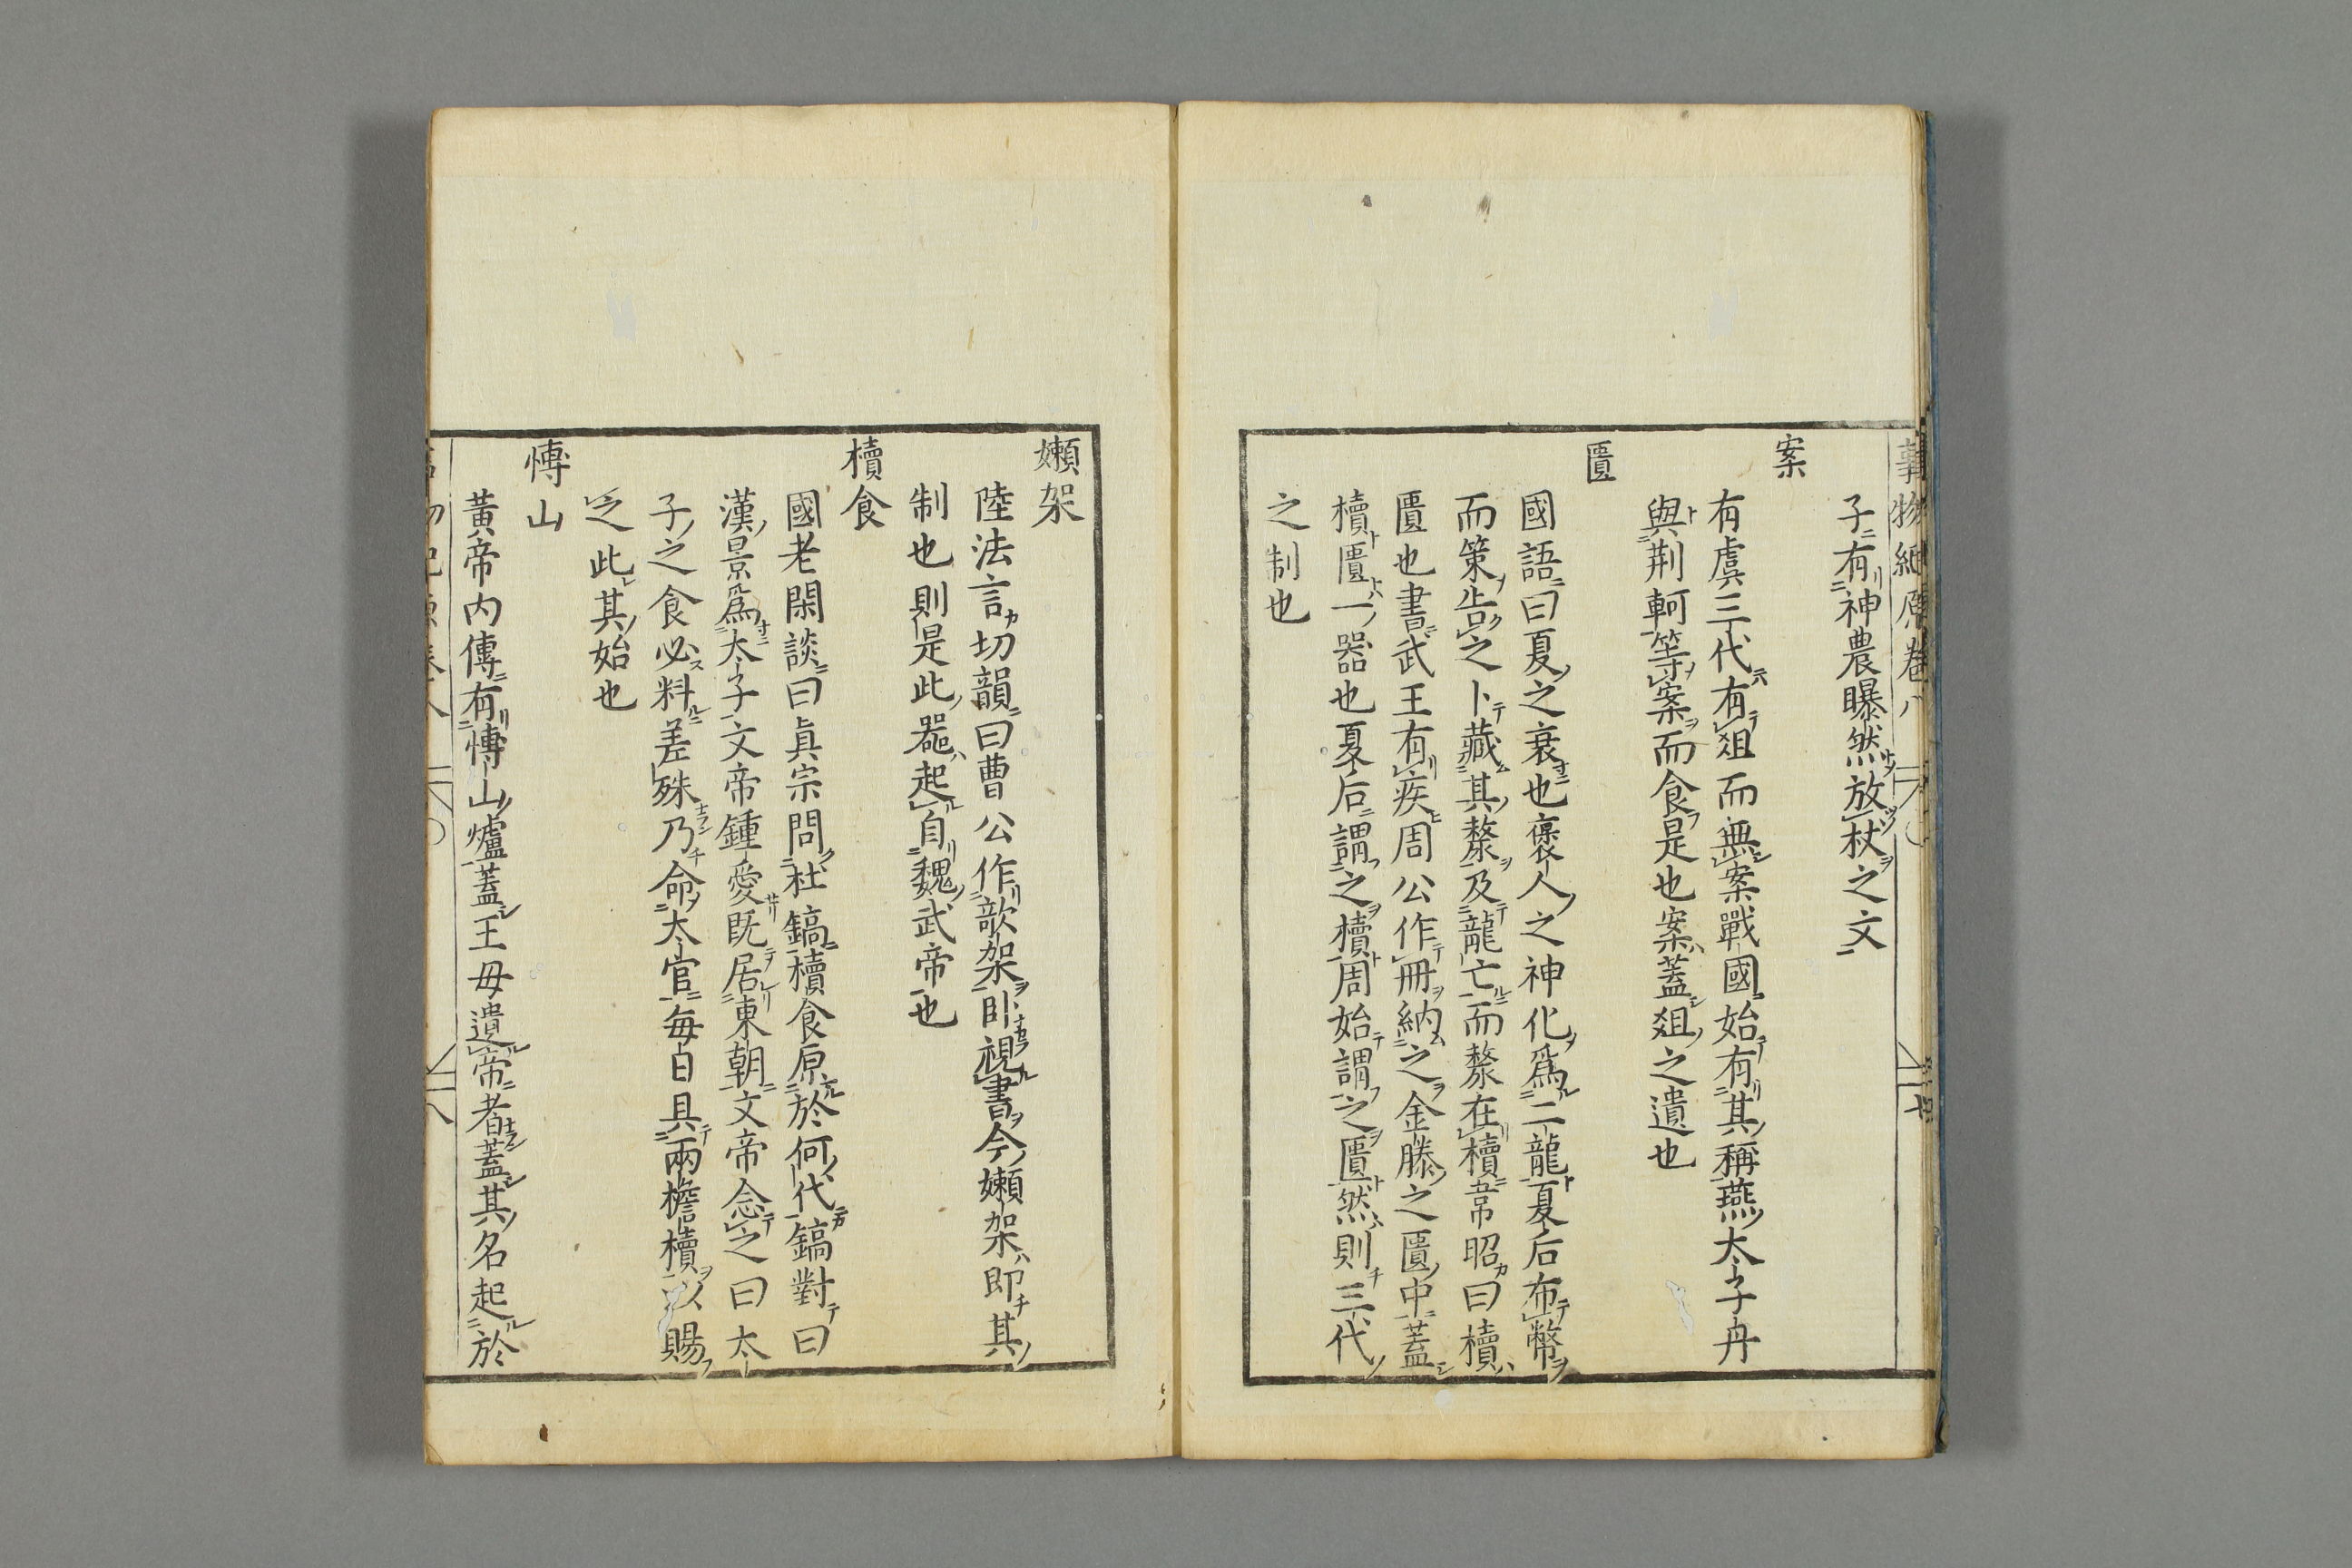 事物紀原卷八
子有神農曝然放杖之文
案
有虞三代有俎而無案戰國始有其稱燕太子丹
與荆軻等案而食是也案蓋俎之遺也
匱
國語曰夏之衰也褒人之神化爲二龍夏后布幣
而策告之卜藏其漦及龍亡而漦在櫝韋昭曰櫝
匱也書武王有疾周公作冊納之金滕之匱中蓋
櫝匱一器也夏后謂之櫝周始謂之匱然則三代
之制也
嬾架
陸法言切韻曰曹公作欹架卧視書今嬾架即其
制也則是此器起自魏武帝也
櫝食
國老閑談曰眞宗問杜鎬櫝食原於何代鎬對曰
漢景爲太子文帝鍾愛既居東朝文帝念之曰太
子之食必料差殊乃命太官每日具兩檐櫝以賜
之此其始也
愽山
黃帝内傳有愽山爐蓋王母遺帝者蓋其名起於